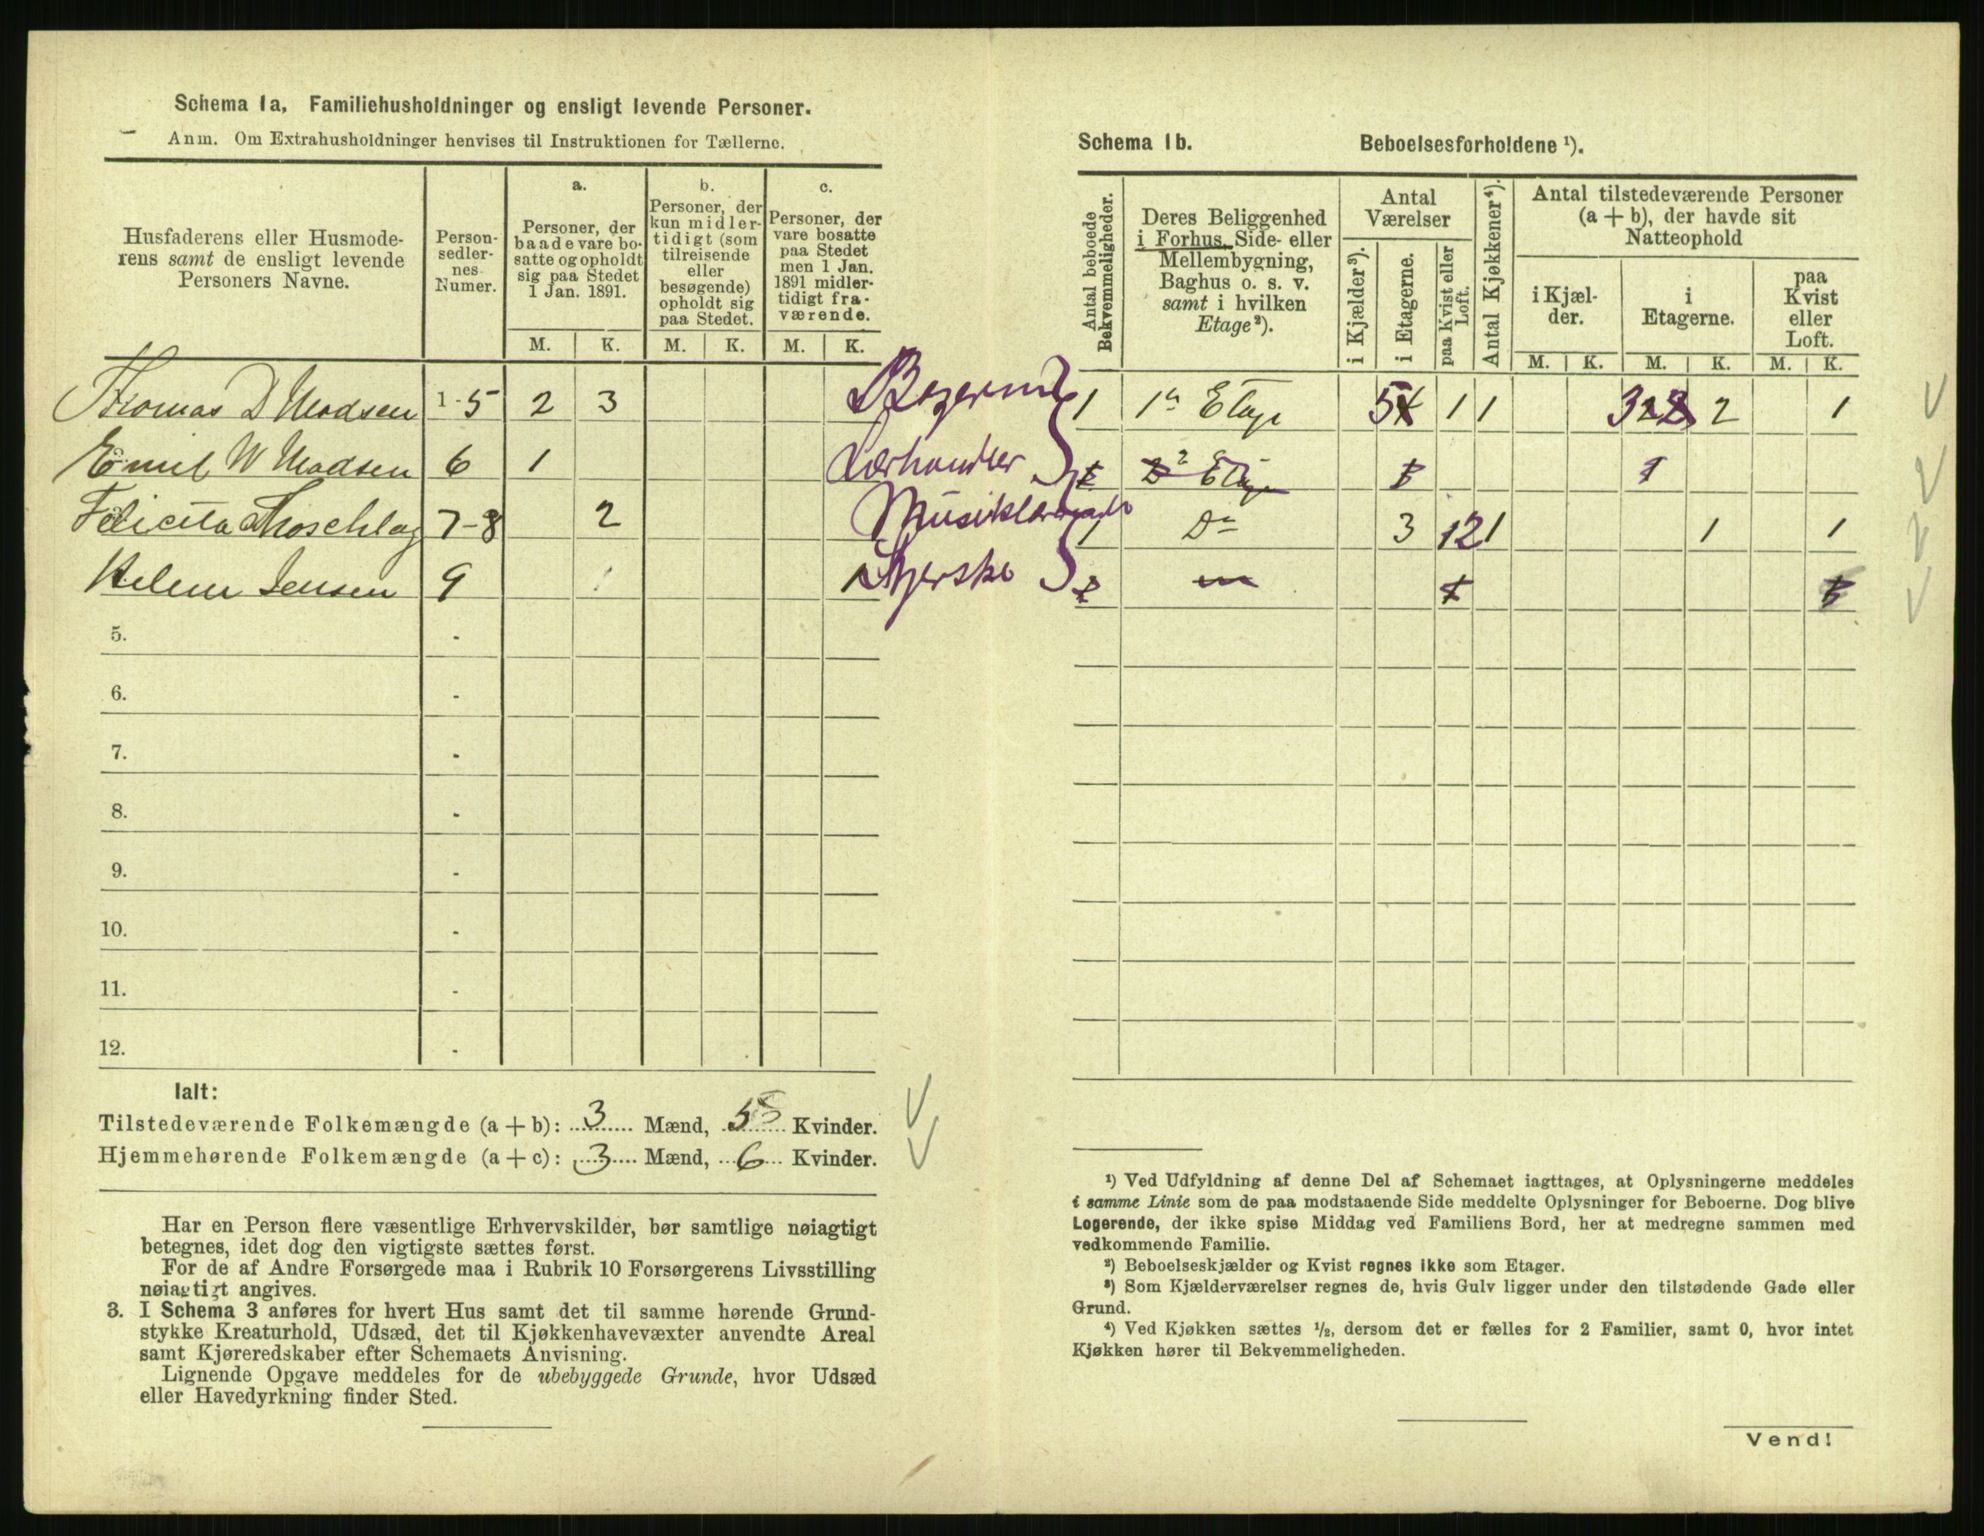 Schema 1a, Familiehusholdninger og ensligt levende Personer.
Anm. Om Extrahusholdninger henvises til Instruktionen for Tællerne.
Husfaderens eller Husmoderens samt de ensligt levende Personers Navne.
Personsedlernes Numer.
a.
Personer, der baade vare bosatte og opholdt sig paa Stedet 1 Jan. 1891.
b.
Personer, der kun midlertidigt (som tilreisende eller besøgende) opholdt sig paa Stedet.
c.
Personer, der vare bosatte paa Stedet men 1 Jan. 1891 midlertidigt fraværende.
M. K. M. K. M. K.
Thomas D Madsen 1-5 2 3
Emil W Madsen 6 1 Lærhandler
Felicita 7-8 2
Helene Jensen 9 1 Syerske
5. -
6. -
7. -
8. -
9. -
10. -
11. -
12. -
Ialt:
Tilstedeværende Folkemængde (a + b): 3 Mænd, 5 Kvinder.
Hjemmehørende Folkemængde (a + c): 3 Mænd, 6 Kvinder.
Har en Person flere væsentlige Erhvervskilder, bør samtlige nøiagtigt
betegnes, idet dog den vigtigste sættes først.
For de af Andre Forsørgede maa i Rubrik 10 Forsørgerens Livsstilling
nøiagtigt angives.
3. I Schema 3 anføres for hvert Hus samt det til samme hørende Grund-
stykke Kreaturhold, Udsæd, det til Kjøkkenhavevæxter anvendte Areal
samt Kjøreredskaber efter Schemaets Anvisning.
Lignende Opgave meddeles for de ubebyggede Grunde, hvor Udsæd
eller Havedyrkning finder Sted.
Schema 1b. Beboelsesforholdene ¹).
Antal beboede Bekvemmeligheder.
Deres Beliggenhed i Forhus, Side- eller Mellembygning, Baghus o. s. v. samt i hvilken Etage²).
Antal Værelser
i Kjælder³).
i Etagerne.
paa Kvist eller Loft.
Antal Kjøkkener⁴).
Antal tilstedeværende Personer (a + b), der havde sit Natteophold
i Kjælder.
i Etagerne.
paa Kvist eller Loft.
M. K. M. K. M. K.
1 1ste Etage 5 1 1 3 2 1
2 Etage 1
1 Do 3 2 1 1 1
¹) Ved Udfyldning af denne Del af Schemaet iagttages, at Oplysningerne meddeles
i samme Linie som de paa modstaaende Side meddelte Oplysninger for Beboerne. Dog blive
Logerende, der ikke spise Middag ved Familiens Bord, her at medregne sammen med
vedkommende Familie.
²) Beboelseskjælder og Kvist regnes ikke som Etager.
³) Som Kjælderværelser regnes de, hvis Gulv ligger under den tilstødende Gade eller
Grund.
⁴) Ved Kjøkken sættes ½, dersom det er fælles for 2 Familier, samt 0, hvor intet
Kjøkken hører til Bekvemmeligheden.
Vend!